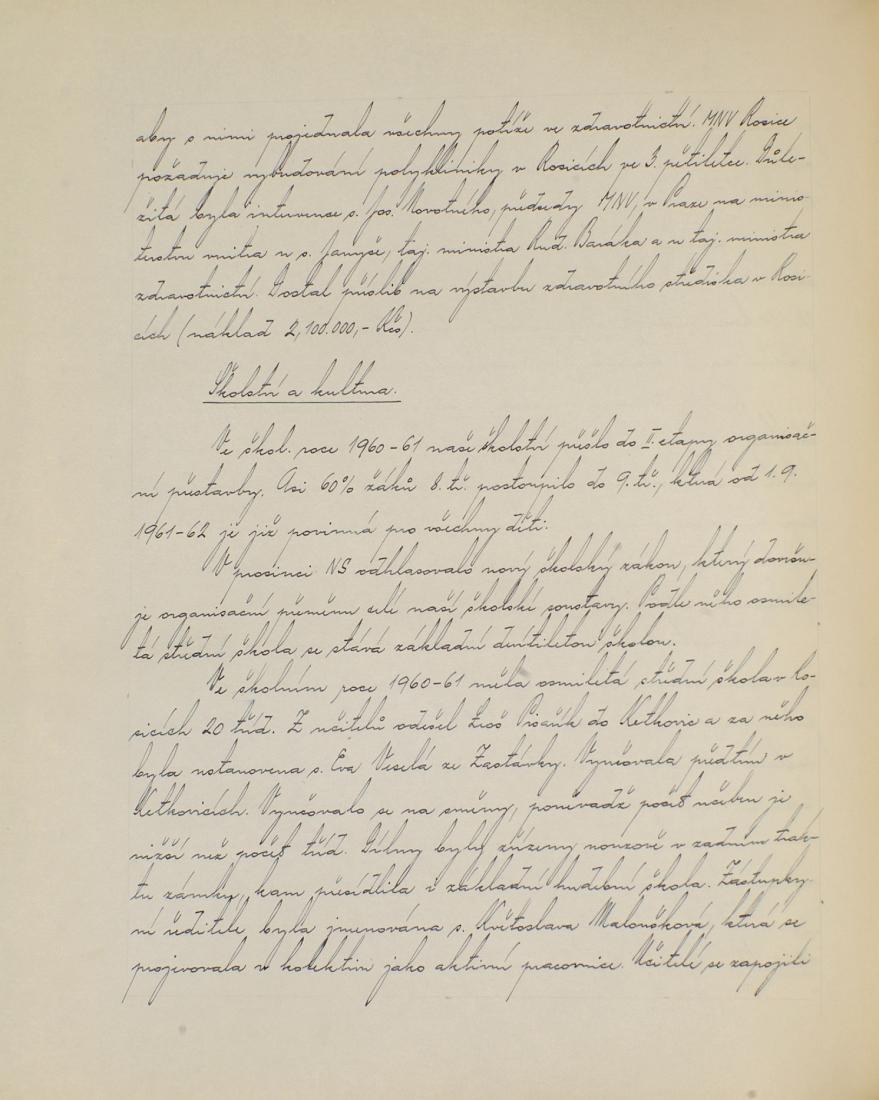 aby s nimi projednala všechny potíže ve zdravotnictví. MNV Rosice
požaduje vybudování polykliniky v Rosicích ve 3. pětiletce. Důle-
žitá byla intervence s. Jos. Novotného, předsedy MNV, v Praze na minis-
terstvu vnitra u s. Jamyše, taj. ministra Rud. Baráka a u taj. ministra
zdravotnictví. Dostal příslib na výstavbu zdravotního střediska v Rosi-
cích (náklad 2,100.000,- Kčs).
Školství a kultura.
Ve škol. roce 1960-61 naše školství přešlo do II. etapy organisač-
ní přestavby. Asi 60% žáků 8. tř. postoupilo do 9. tř., která od 1. 9.
1961-62 je již povinná pro všechny děti.
V prosinci NS odhlasovalo nový školský zákon, který dovršu-
je organisační přeměnu celé naší školské soustavy. Podle něho osmile-
tá střední škola se stává základní devítiletou školou.
Ve školním roce 1960-61 měla osmiletá střední škola v Ro-
sicích 20 tříd. Z učitelů odešel Leoš Pisařík do Ketkovic a za něho
byla ustanovena s. Eva Veselá ze Zastávky. Vyučovala předtím v
Ketkovicích. Vyučovalo se na směny, poněvadž počet učeben je
nižší než počet tříd. Dílny byly zřízeny nouzově v zadním trak-
tu zámku, kam přesídlila i základní hudební škola. Zástupky-
ní ředitele byla jmenována s. Květoslava Maloušková, která se
projevovala v kolektivu jako aktivní pracovnice. Učitelé se zapojili